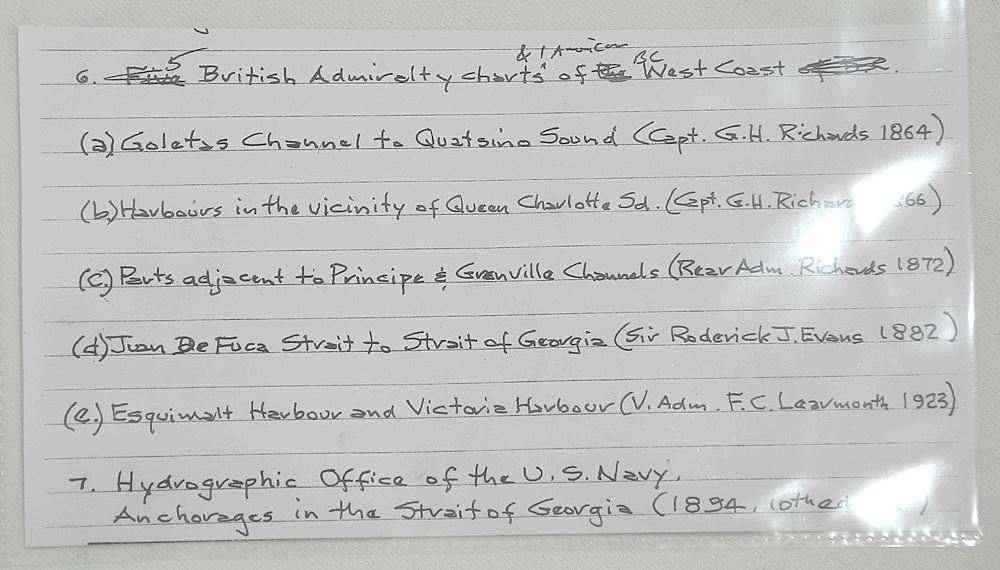 & 1 American
6. 5 British Admiralty charts of BC West Coast.
(a) Goletas Channel to Quatsino Sound (Capt. G.H. Richards 1864)
(b) Harbours in the vicinity of Queen Charlotte Sd. (Capt. G.H. Richards 66)
(c) Ports adjacent to Principe & Grenville Channels (Rear Adm. Richards 1872)
(d) Juan De Fuca Strait to Strait of Georgia (Sir Roderick J. Evans 1882)
(e.) Esquimalt Harbour and Victoria Harbour (V. Adm. F.C. Learmonth 1923)
7. Hydrographic Office of the U.S. Navy.
Anchorages in the Strait of Georgia (1894,